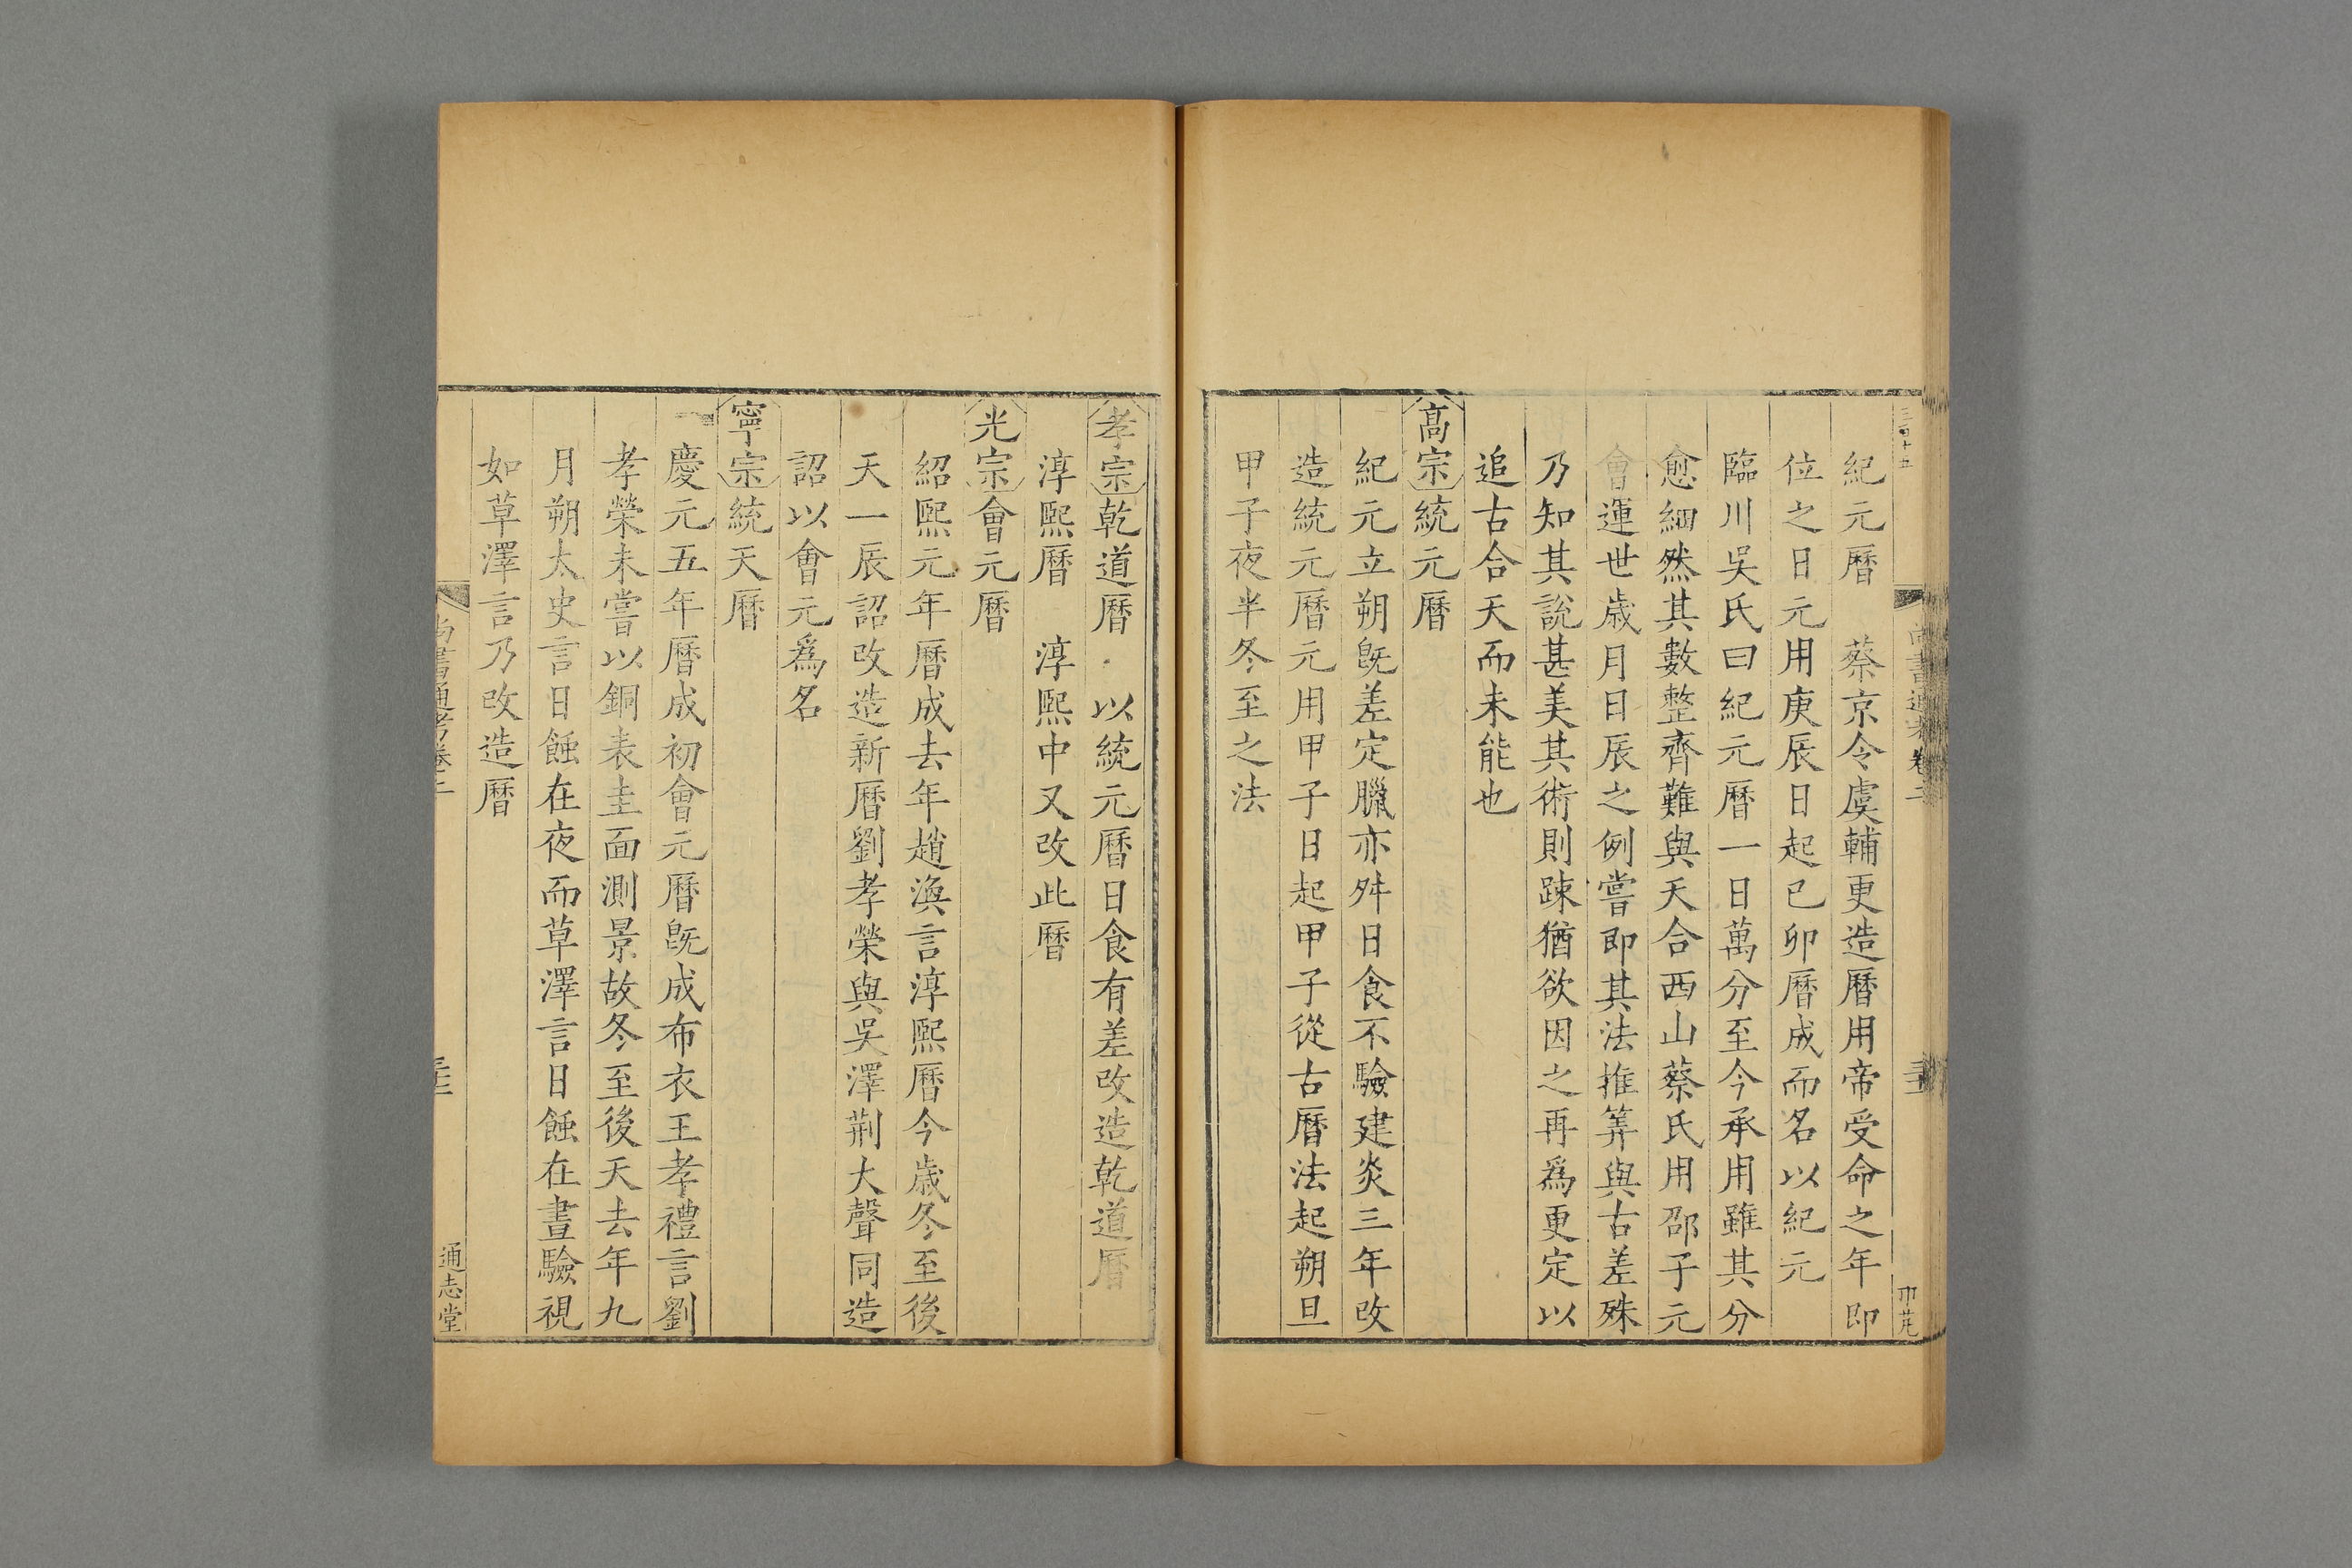 尚書通考卷二
紀元曆　蔡京令虞輔更造曆用帝受命之年即
位之日元用庚辰日起己卯曆成而名以紀元
臨川吴氏曰紀元曆一日萬分至今承用雖其分
愈細然其數整齊難與天合西山蔡氏用邵子元
會運世歲月日辰之例嘗即其法推筭與古差殊
乃知其說甚美其術則踈猶欲因之再爲更定以
追古合天而未能也
髙宗統元曆
紀元立朔旣差定臘亦舛日食不驗建炎三年改
造統元曆元用甲子日起甲子從古曆法起朔旦
甲子夜半冬至之法
孝宗乾道曆　以統元曆日食有差改造乾道曆
淳熙曆　淳熙中又改此曆
光宗會元曆
紹熙元年曆成去年趙渙言淳熙曆今歲冬至後
天一辰詔改造新曆劉孝榮與吴澤荆大聲同造
詔以會元爲名
寧宗統天曆
慶元五年曆成初會元曆旣成布衣王孝禮言劉
孝榮未嘗以銅表圭面測景故冬至後天去年九
月朔太史言日蝕在夜而草澤言日蝕在晝驗視
如草澤言乃改造曆
尚書通考卷二
通志堂